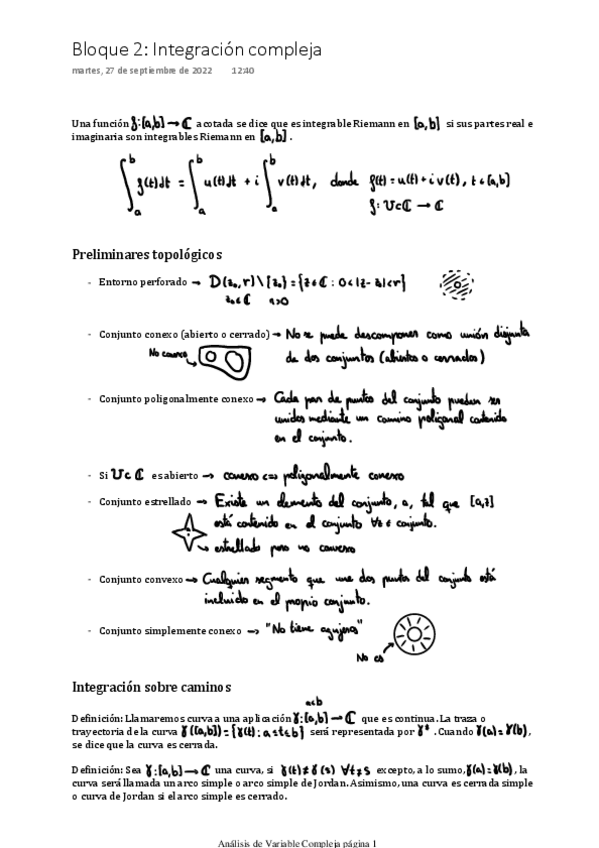 Bloque 2: Integración compleja
martes, 27 de septiembre de 2022 12:40
Una función f:[a,b] → ℂ acotada se dice que es integrable Riemann en [a,b] si sus partes real e
imaginaria son integrables Riemann en [a,b].
∫_a^b f(t)dt = ∫_a^b u(t)dt + i ∫_a^b v(t)dt, donde f(t) = u(t) + i v(t), t ∈ [a,b]
f: U⊂ℂ → ℂ
Preliminares topológicos
- Entorno perforado → D(z₀,r)\{z₀} = {z∈ℂ : 0<|z-z₀|<r}
z₀∈ℂ r>0
- Conjunto conexo (abierto o cerrado) → No se puede descomponer como unión disjunta
No conexo de dos conjuntos (abiertos o cerrados)
- Conjunto poligonalmente conexo → Cada par de puntos del conjunto pueden ser
unidos mediante un camino poligonal contenido
en el conjunto.
- Si U⊂ℂ es abierto → conexo ⇔ poligonalmente conexo
- Conjunto estrellado → Existe un elemento del conjunto, a, tal que [a,z]
está contenido en el conjunto ∀z ∈ conjunto.
estrellado pero no convexo
- Conjunto convexo → Cualquier segmento que une dos puntos del conjunto está
incluido en el propio conjunto.
- Conjunto simplemente conexo → "No tiene agujeros"
No es
Integración sobre caminos
a<b
Definición: Llamaremos curva a una aplicación γ:[a,b] → ℂ que es continua. La traza o
trayectoria de la curva γ([a,b]) = {γ(t) : a≤t≤b} será representada por γ*. Cuando γ(a) = γ(b),
se dice que la curva es cerrada.
Definición: Sea γ:[a,b] → ℂ una curva, si γ(t) ≠ γ(s) ∀t≠s excepto, a lo sumo, γ(a) = γ(b), la
curva será llamada un arco simple o arco simple de Jordan. Asimismo, una curva es cerrada simple
o curva de Jordan si el arco simple es cerrado.
Análisis de Variable Compleja página 1